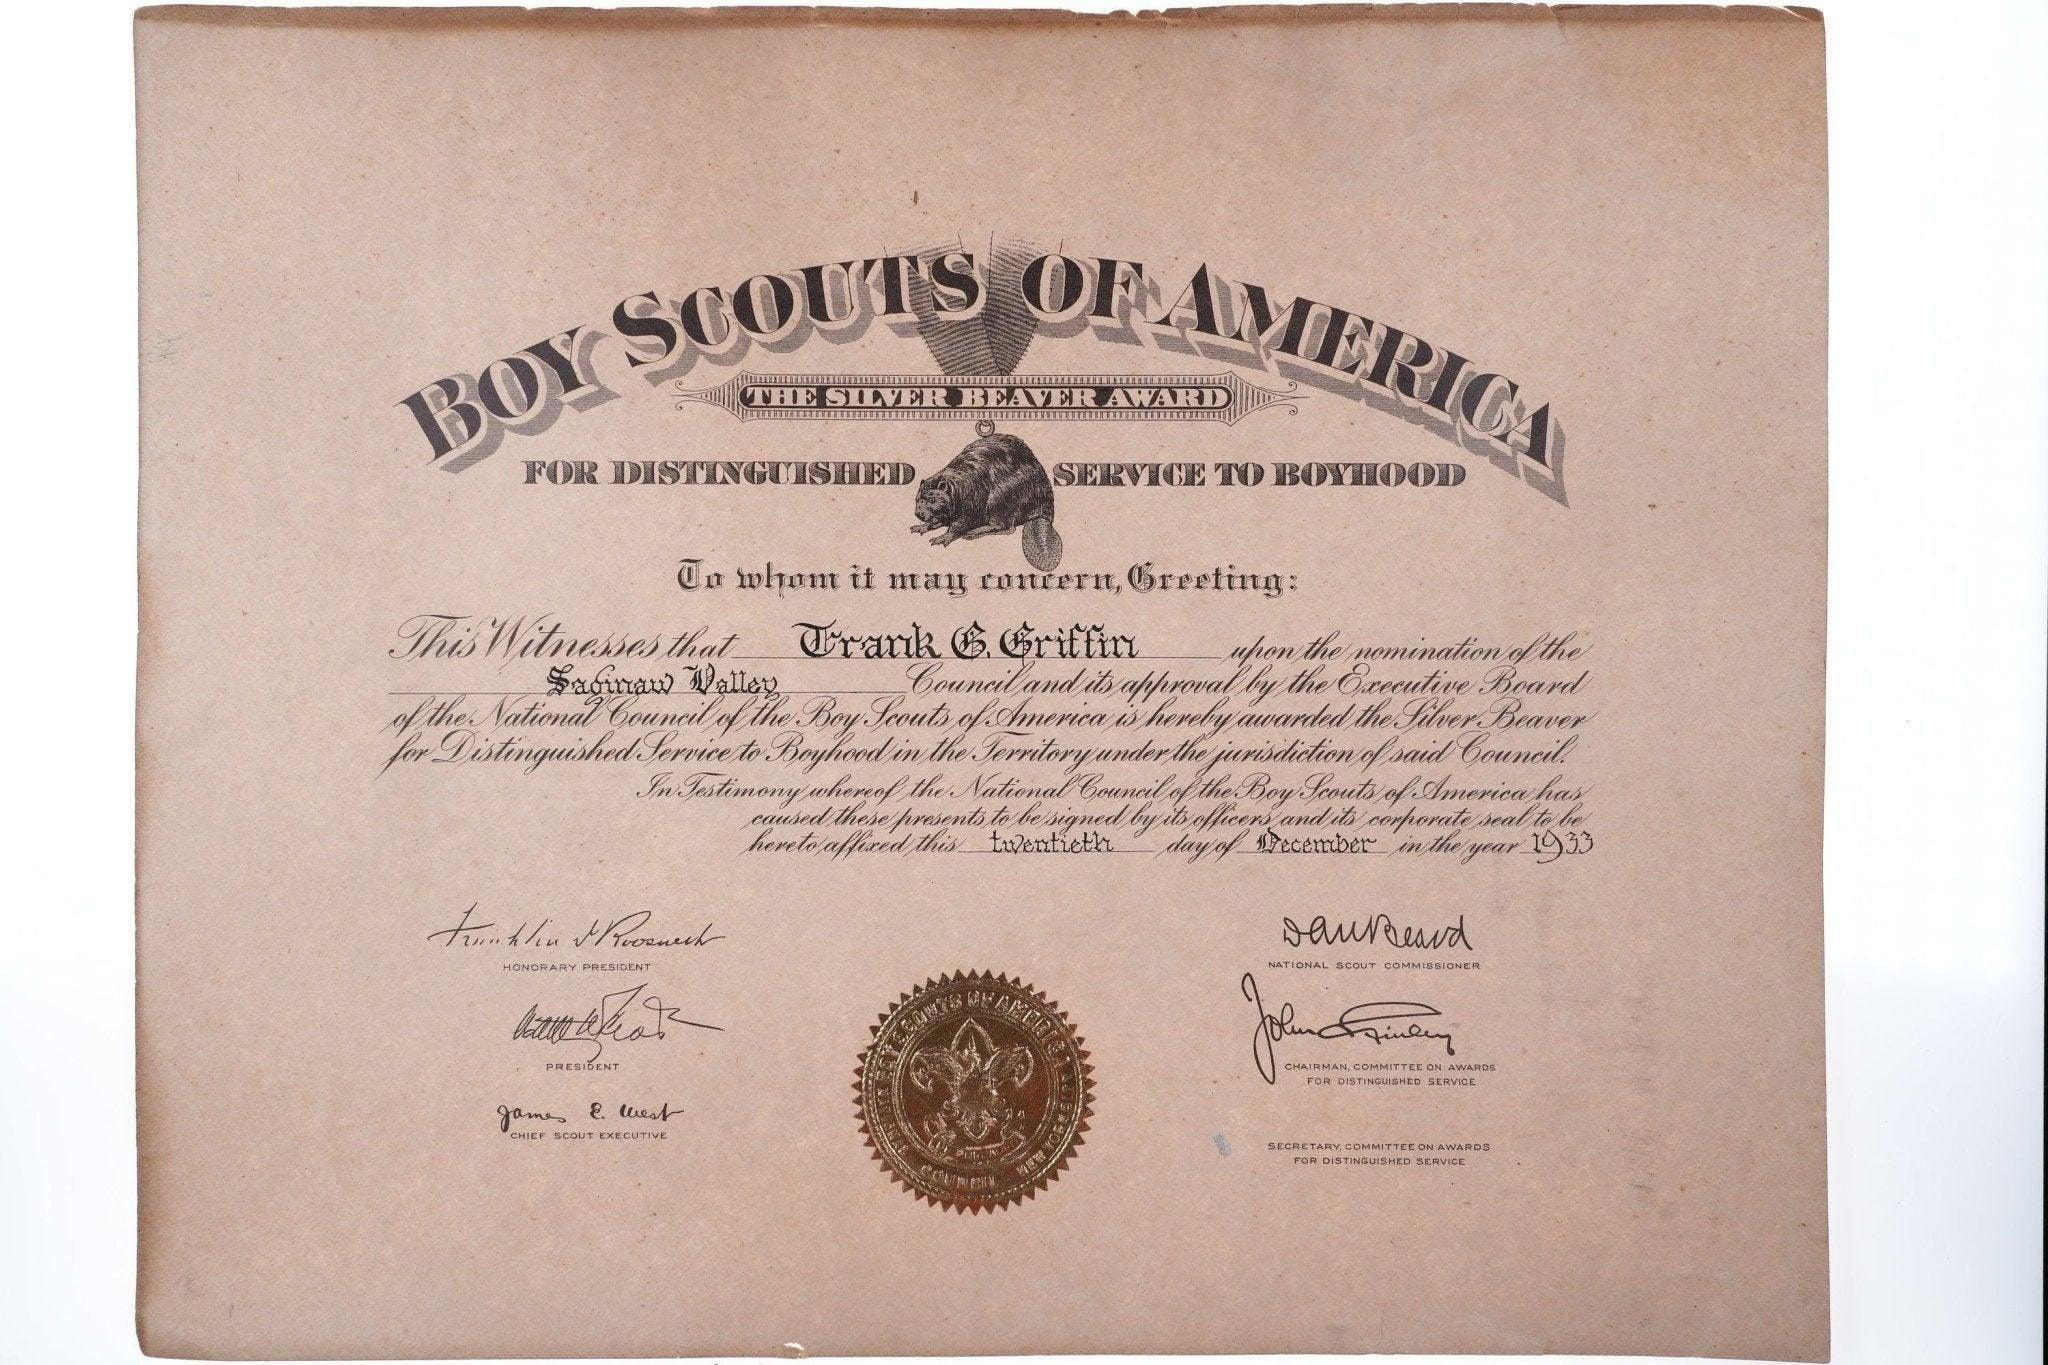 BOY SCOUTS OF AMERICA
THE SILVER BEAVER AWARD
FOR DISTINGUISHED SERVICE TO BOYHOOD
To whom it may concern, Greeting:
This Witnesses that Frank G. Griffin upon the nomination of the
Saginaw Valley Council and its approval by the Executive Board
of the National Council of the Boy Scouts of America is hereby awarded the Silver Beaver
for Distinguished Service to Boyhood in the Territory under the jurisdiction of said Council.
In Testimony whereof the National Council of the Boy Scouts of America has
caused these presents to be signed by its officers and its corporate seal to be
hereto affixed this twentieth day of December in the year 1933
Franklin D Roosevelt
HONORARY PRESIDENT
PRESIDENT
James E. West
CHIEF SCOUT EXECUTIVE
Dan Beard
NATIONAL SCOUT COMMISSIONER
John Finley
CHAIRMAN, COMMITTEE ON AWARDS
FOR DISTINGUISHED SERVICE
SECRETARY, COMMITTEE ON AWARDS
FOR DISTINGUISHED SERVICE
BOY SCOUTS OF AMERICA
COUNCIL NEW YORK